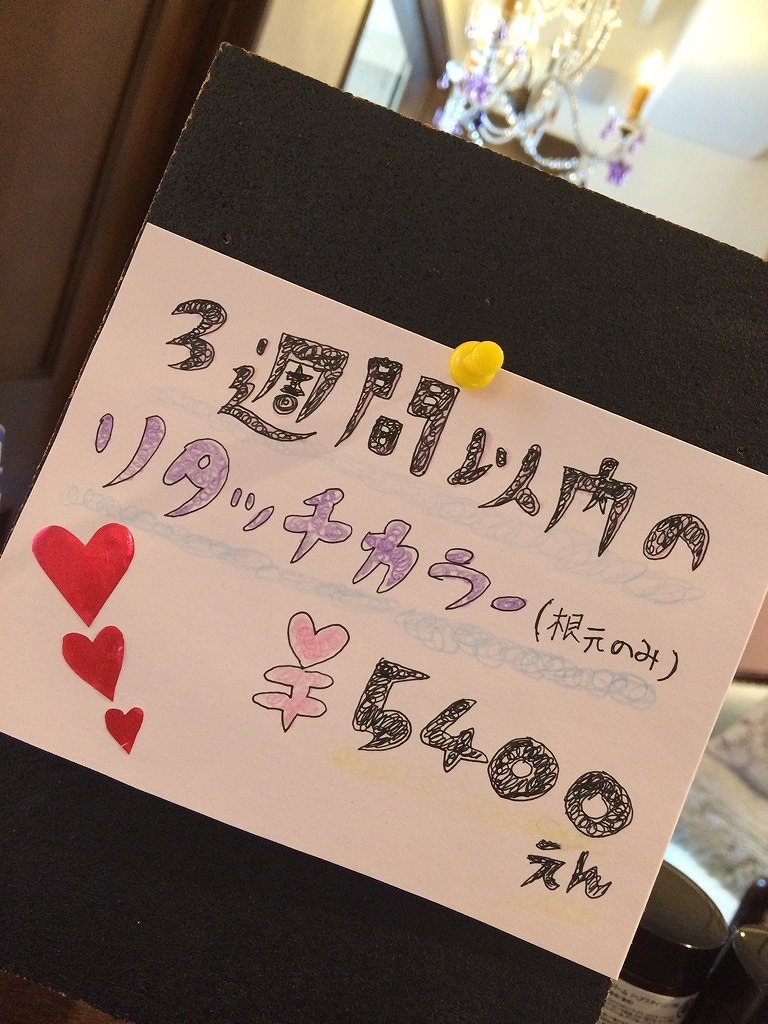 3週間以内の
リタッチカラー(根元のみ)
¥5400
えん